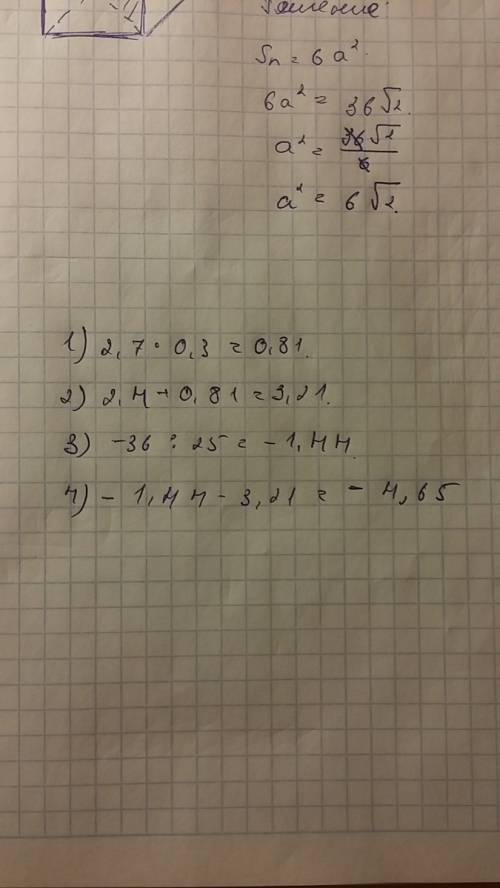 Решение:
Sп = 6a².
6a² = 36√2.
a² = 36√2 / 6
a² = 6√2.
1) 2,7 · 0,3 = 0,81.
2) 2,4 + 0,81 = 3,21.
3) -36 : 25 = -1,44.
4) - 1,44 - 3,21 = - 4,65